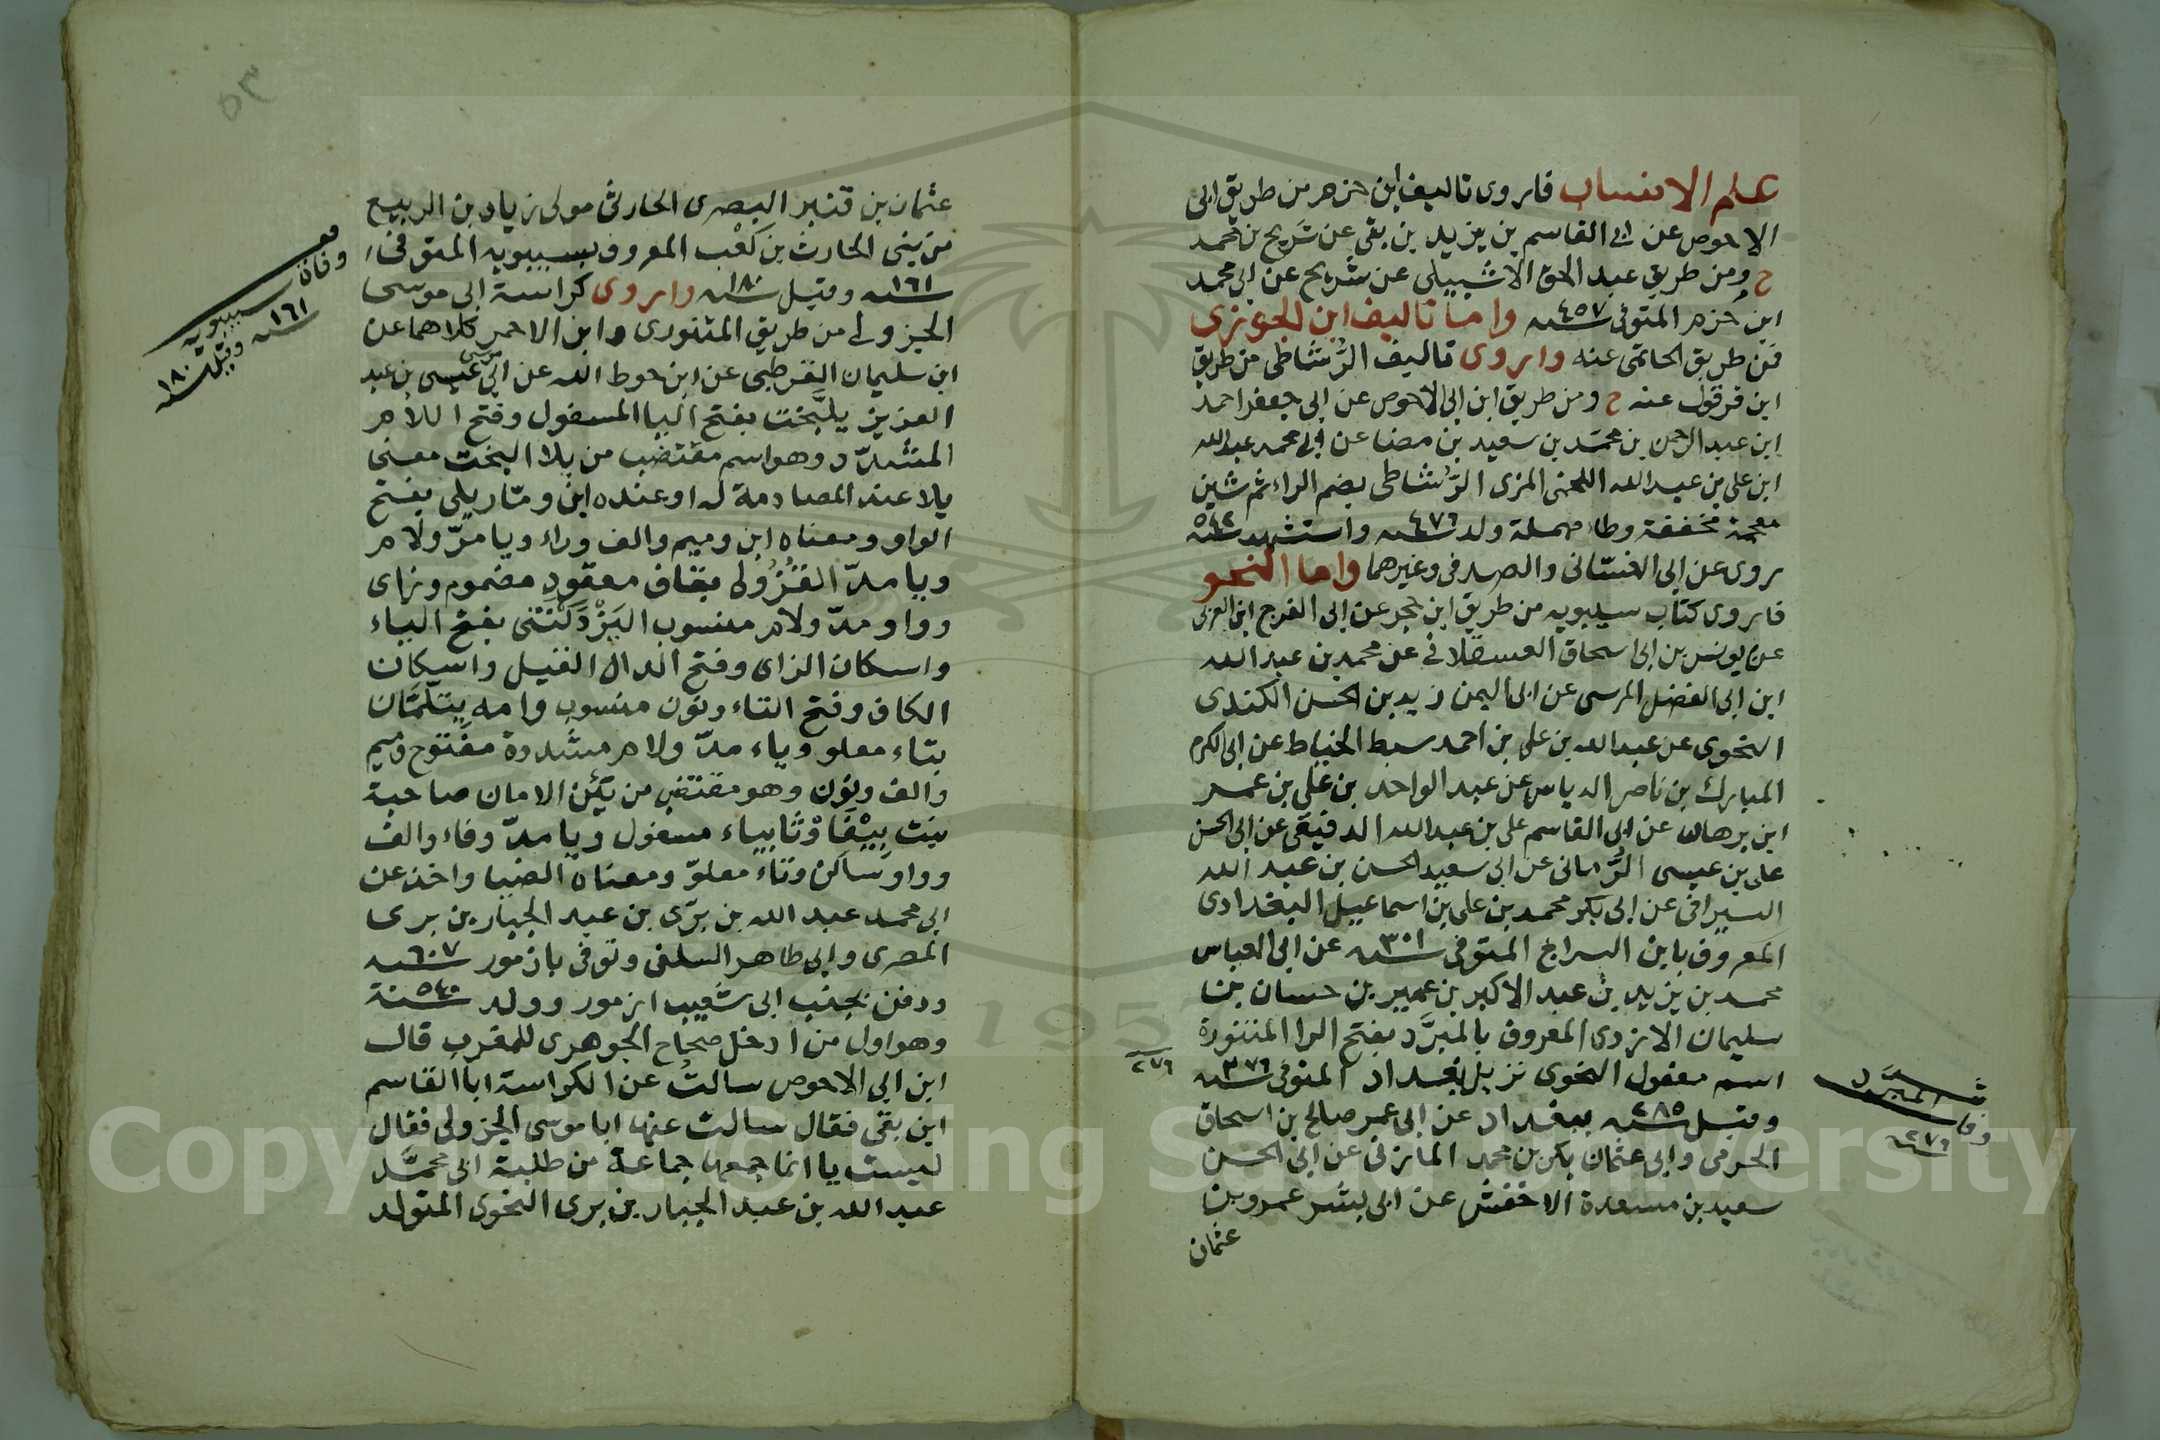 علم الانساب فاروى تاليف ابن حزم من طريق ابى
الاحوص عن ابى القاسم بن يزيد بن بقى عن شريح بن محمد
ح ومن طريق عبد الحق الاشبيلى عن شريح عن ابى محمد
ابن حزم المتوفى سنه ٤٥٧ واما تاليف ابن الجوزى
فمن طريق الحاتمى عنه واروى تاليف الرُّشَاطى من طريق
ابن قرقول عنه ح ومن طريق ابن ابى الاحوص عن ابى جعفر احمد
ابن عبد الرحمن بن محمد بن سعيد بن مضا عن ابى محمد عبد الله
ابن على بن عبد الله اللخمى المزى الرُّشاطى بضم الراء ثم شين
معجمة مخففة وطاء مهملة ولد سنه ٤٧٦ واستشهد سنه ٥٤٢
يروى عن ابى الغسانى والصدفى وغيرهما واما النحو
فاروى كتاب سيبويه من طريق ابن حجر عن ابى الفرج ابن الغزى
عن يونس بن ابى اسحاق العسقلانى عن محمد بن عبد الله
ابن ابى الفضل المرسى عن ابى اليمن زيد بن الحسن الكندى
النحوى عن عبد الله بن على بن احمد سبط الخياط عن ابى الكرم
المبارك بن ناصر الدباس عن عبد الواحد بن على بن عمر
ابن برهان عن ابى القاسم على بن عبد الله الدقيقى عن ابى الحسن
على بن عيسى الرُّمانى عن ابى سعيد الحسن بن عبد الله
السيرافى عن ابى بكر محمد بن على بن اسماعيل البغدادى
المعروف بابن السراج المتوفى سنه ٣٠١ عن ابى العباس
محمد بن يزيد بن عبد الاكبر بن عمير بن حسان بن
سليمان الازدى المعروف بالمبرَّد بفتح الرا المنثورة
اسم مفعول النحوى نزيل بغداد المتوفى سنه ٣٧٦
٢٧٦
وقيل سنه ٢٨٥ ببغداد عن ابى عمر صالح بن اسحاق
الجرمى وابى عثمان بكر بن محمد المازنى عن ابى الحسن
سعيد بن مسعدة الاخفش عن ابى بشر عمرو بن
عثمان
المبرد
وفاة
٢٧٦
٥٣
عثمان بن قنبر البصرى الحارثى مولى زياد بن الربيع
من بنى الحارث بن كعْب المعروف بسيبويه المتوفى
سنه ١٦١ وقيل سنه ١٨٠ واروى كراسة ابى موسى
الجزولى من طريق المنثورى وابن الاحمر كلاهما عن
ابن سليمان القرطبى عن ابن حوط الله عن ابى موسى عيسى بن عبد
العزيز يلَلْبَخت بفتح اليا المسفول وفتح اللام
المشدّد وهو اسم مقتضب من يلا البخت معنى
يلا عند المصادمة له او عنده ابن ومّاريلى بفتح
الواو ومعناه ابن وميم والف وراء ويا مدّ ولام
ويا مدّ القُزُولى بقاف معقود مضموم وزاى
وواو مدّ ولام منسوب اليَزْدَكْتَنى بفتح الياء
واسكان الزاى وفتح الدال الغفيل واسكان
الكاف وفتح التاء ونون منسوب وامه تِيتَلّمَّان
بتاء معلو وياء مدّ ولام مشددة مفتوح وميم
والف ونون وهو مقتضب من الامان صاحبة
بنت بِيفَاوْتَا بياء مسفول ويا مدّ وفاء والف
وواو ساكن وتاء معلوّ ومعناه الضيا واخذ عن
ابى محمد عبد الله بن برّى بن عبد الجبار بن برى
المصرى وابى طاهر السلفى وتوفى بازمور سنه ٦٠٧
ودفن بجنب ابى شعيب ازمور وولد سنة ٥٤٠
وهو اول من ادخل صحاح الجوهرى للمغرب قال
ابن ابى الاحوص سالتُ عن الكراسة ابا القاسم
ابن بقى فقال سالت عنها ابا موسى الجزولى فقال
ليست يا انما جمعها جماعة من طلبة ابى محمَّد
عبد الله بن عبد الجبار بن برى النحوى المتولد
وفاة
سيبويه
١٦١
وقيل ١٨٠
Copyright © King Saud University
1957